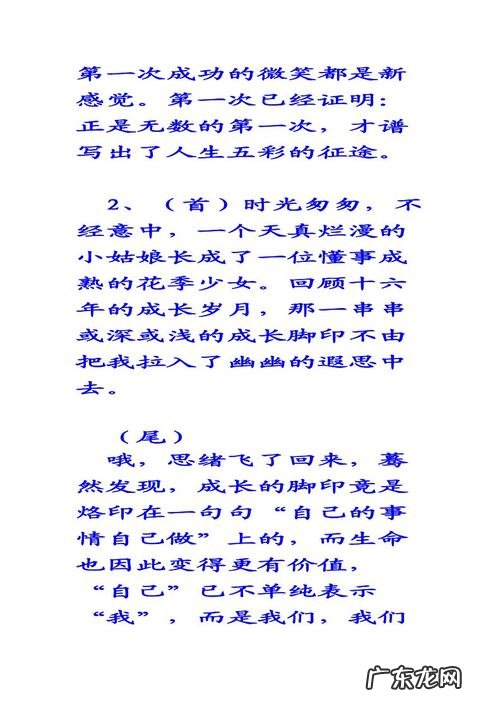 第一次成功的微笑都是新
感觉。第一次已经证明：
正是无数的第一次，才谱
写出了人生五彩的征途。
2、（首）时光匆匆，不
经意中，一个天真烂漫的
小姑娘长成了一位懂事成
熟的花季少女。回顾十六
年的成长岁月，那一串串
或深或浅的成长脚印不由
把我拉入了幽幽的遐思中
去。
（尾）
哦，思绪飞了回来，蓦
然发现，成长的脚印竟是
烙印在一句句“自己的事
情自己做”上的，而生命
也因此变得更有价值，
“自己”已不单纯表示
“我”，而是我们，我们
广东龙网